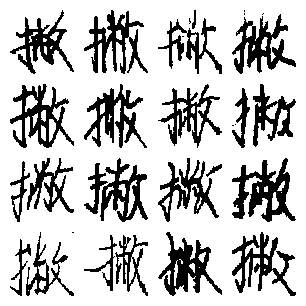 撇撇撇撇
撇撇撇撇
撇撇撇撇
撇撇撇撇